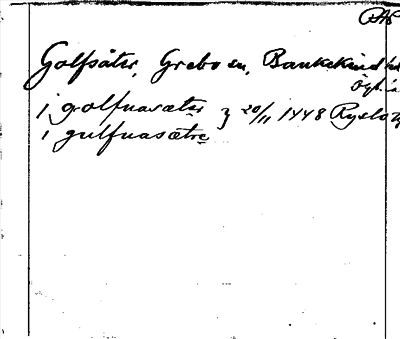 PAP
Golfsäter, Grebo sn, Bankekind hd
Ögl.
i golfuasæter } 20/11 1448 Ryslo
i gulfuasætre